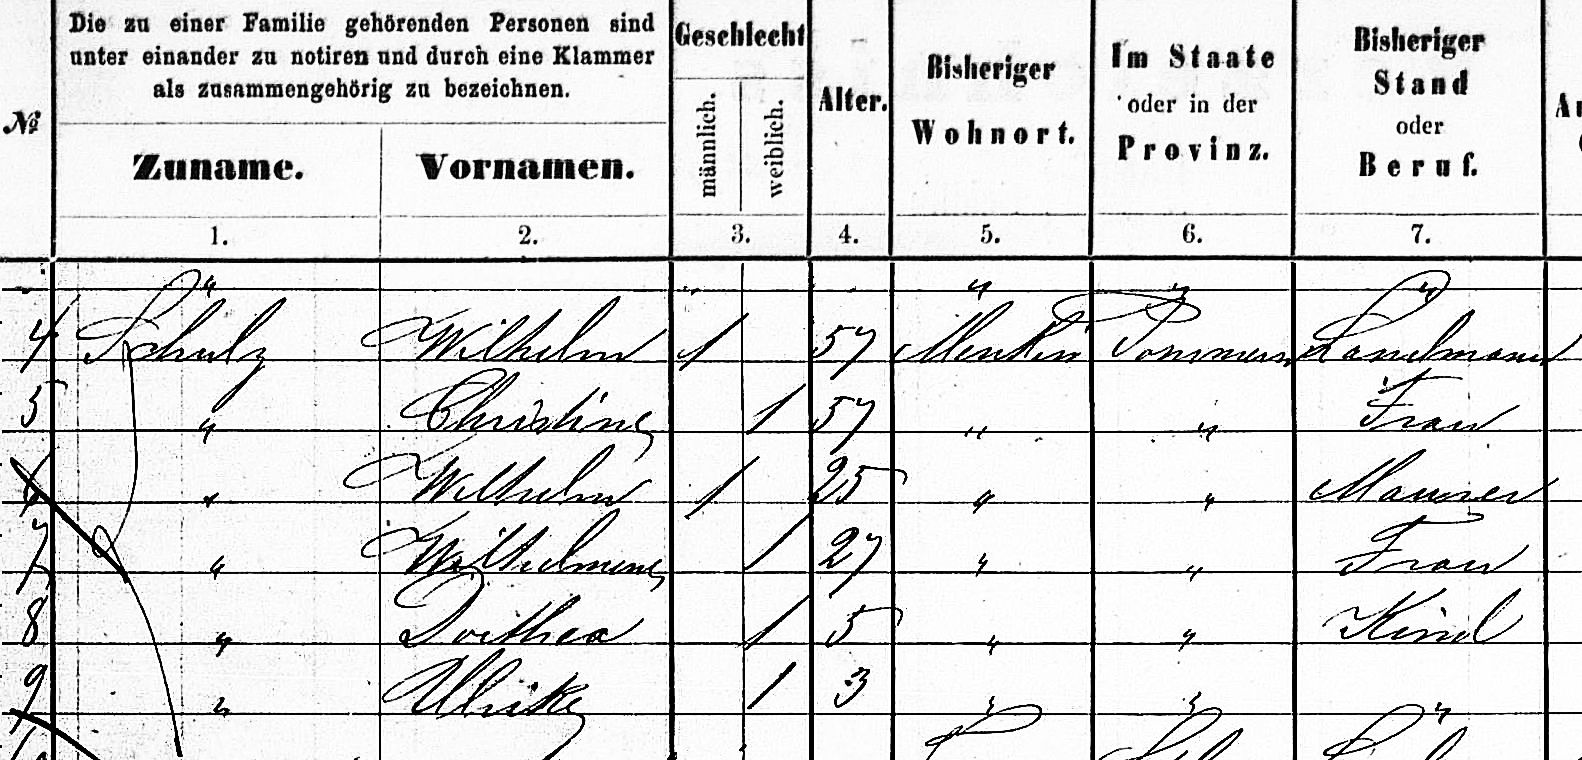 Die zu einer Familie gehörenden Personen sind
unter einander zu notiren und durch eine Klammer
als zusammengehörig zu bezeichnen.
№
Zuname.
Vornamen.
Geschlecht
männlich.
weiblich.
Alter.
Bisheriger
Wohnort.
Im Staate
oder in der
Provinz.
Bisheriger
Stand
oder
Beruf.
1. 2. 3. 4. 5. 6. 7.
" " " " "
4 Schulz Wilhelm 1 57 Menkin Pommern Landmann
5 " Christine 1 57 " " Frau
6 " Wilhelm 1 25 " " Maurer
7 " Wilhelmine 1 27 " " Frau
8 " Dorthea 1 5 " " Kind
9 " Ulrike 1 3 " " "